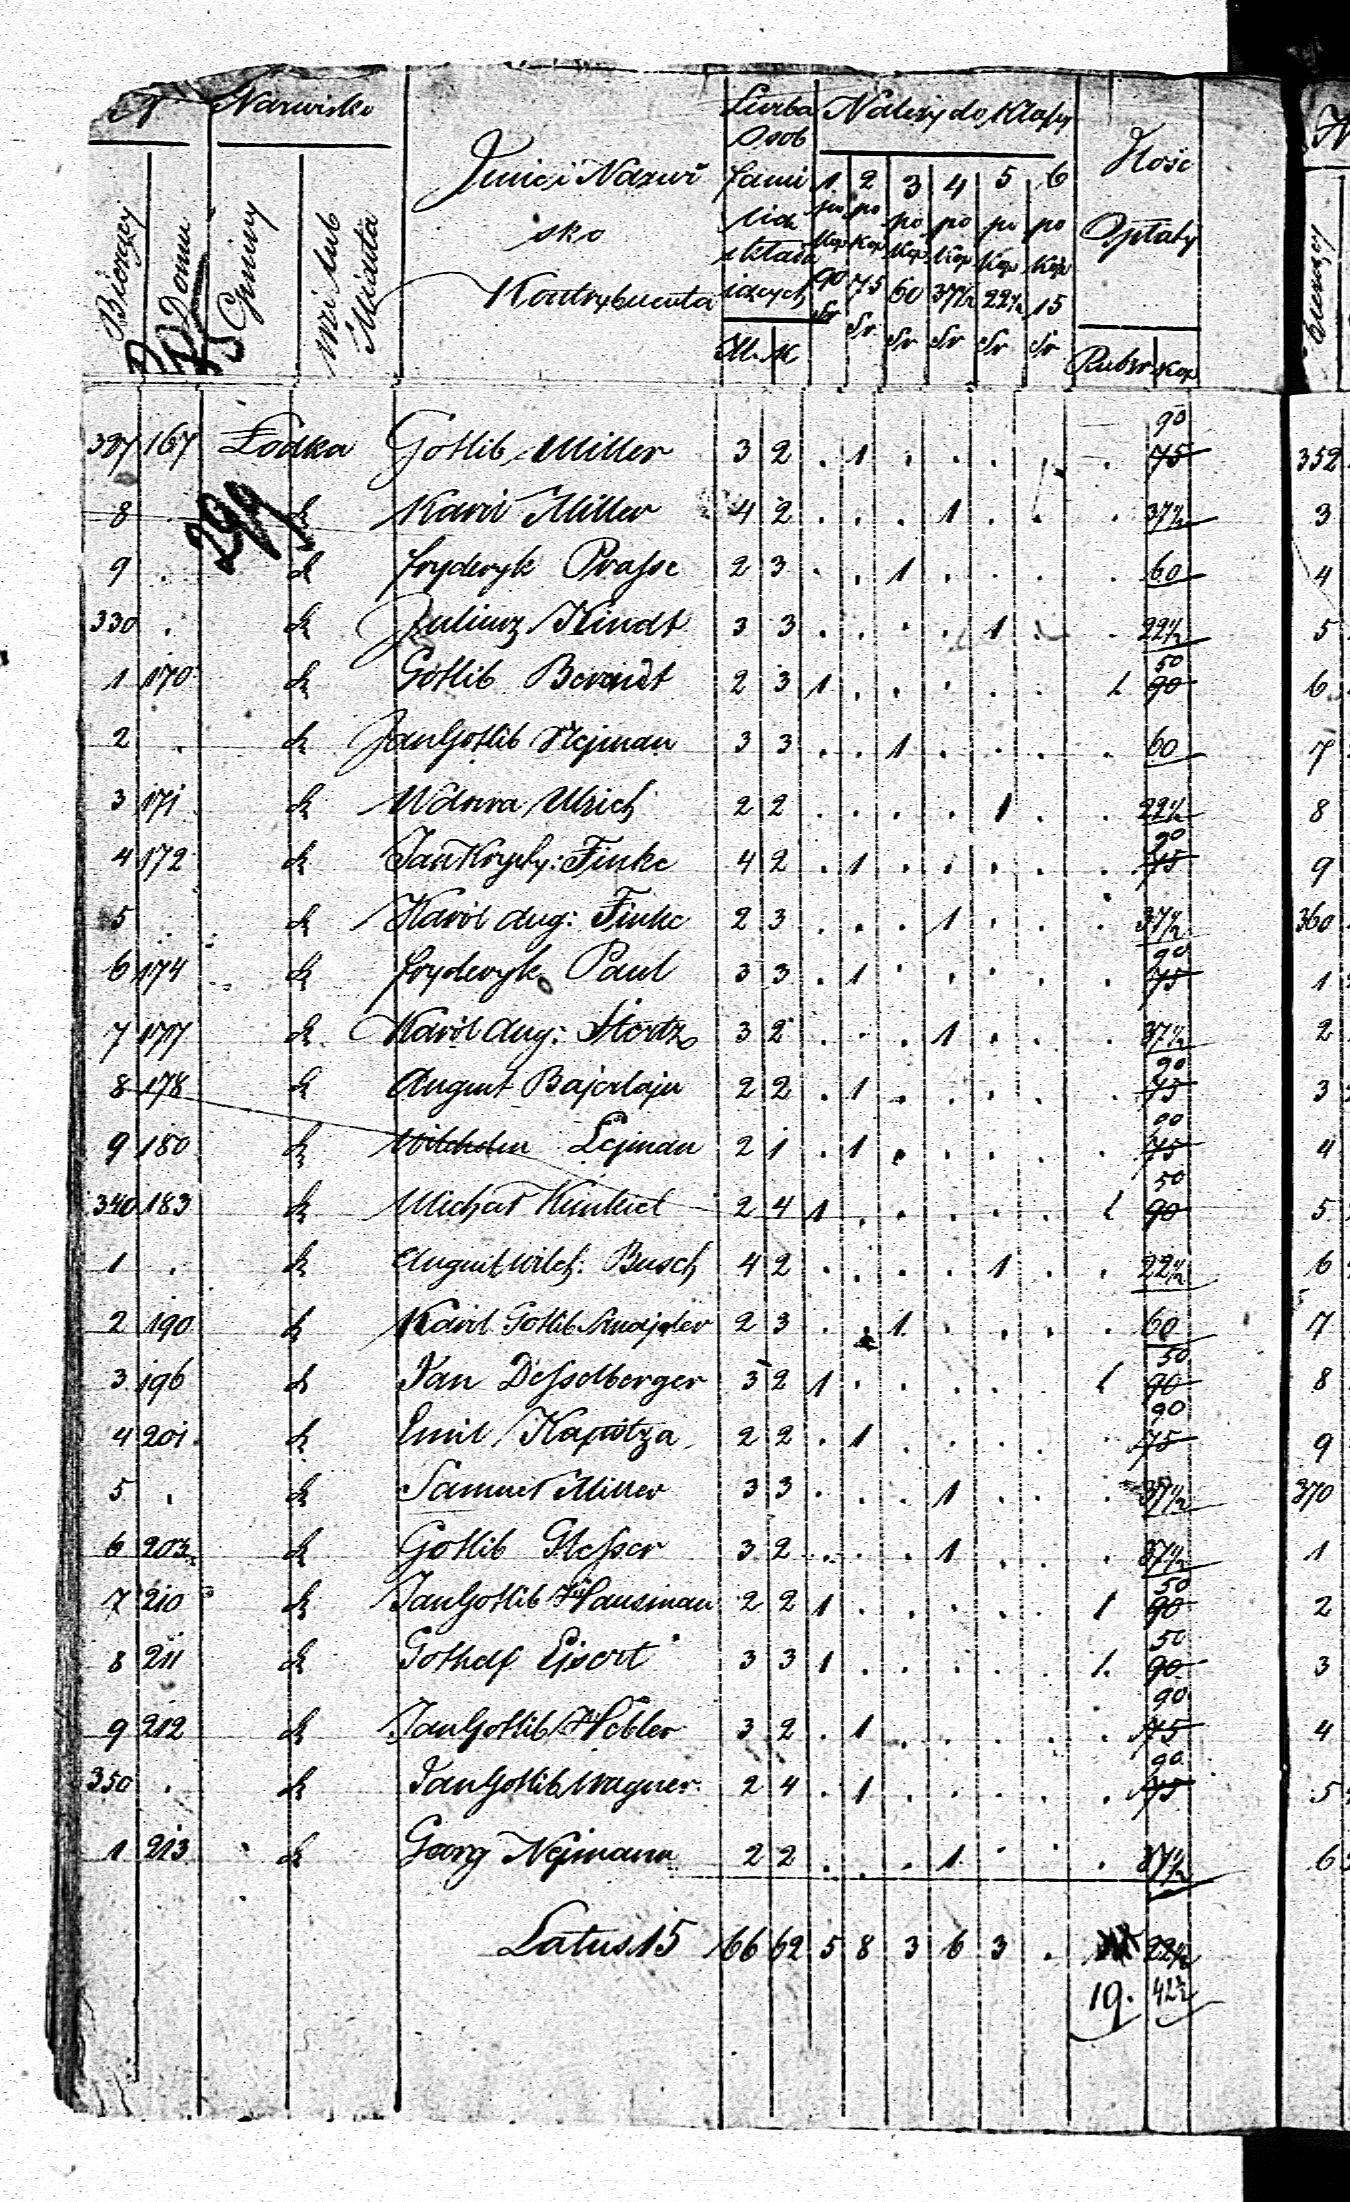 Nazwisko
Bieżący
Domu
Gminy
wsi lub Miasta
Imie i Nazwisko Kontrybuenta
Liczba Osob familia składaiących
M. K
Należy do Klassy
1 2 3 4 5 6
po po po po po po
Kop Kop Kop Kop Kop Kop
90 75 60 37½ 22½ 15
Sr Sr Sr Sr Sr Sr
Ilość Opłaty
Rubsr Kop
327 167 Łodka Gotlib Miller 3 2 . 1 . . . . . 75 90
299
8 . d Karol Miller 4 2 . . . 1 . . . 37½
9 . d Fryderyk Prasse 2 3 . . 1 . . . 60
330 . d Juliusz Kindt 3 3 . . . . 1 . 22½
1 170 d Gotlib Berendt 2 3 1 . . . . . 90 50
2 . d Jan Gotlib Hejman 3 3 . . 1 . . . . 60
3 171 d Wdowa Ulrich 2 2 . . . . 1 . . 22½
4 172 d Jan Krysty: Finke 4 2 . 1 . . . . . 75 90
5 . d Karól Aug: Finke 2 3 . . . 1 . . . 37½
6 174 d Fryderyk Paul 3 3 . 1 . . . . . 75 90
7 177 d Karól Aug: Stortz 3 2 . . . 1 . . . 37½
8 178 d August 2 2 . 1 . . . . . 75 90
9 180 d Wilchelm Lejman 2 1 . 1 . . . . . 75 90
340 183 d Michał Kunkiel 2 4 1 . . . . . 90 50
1 . d August Wilch: Busch 4 2 . . . . 1 . . 22½
2 190 d Karol Gotlib 2 3 . . 1 . . . . 60
3 196 d Jan Desselberger 3 2 1 . . . . . 90 50
4 201 d Emil Kapitza 2 2 . 1 . . . . . 75 90
5 . d Samuel Miller 3 3 . . . 1 . . . 37½
6 203 d Gotlib Glesser 3 2 . . . 1 . . . 37½
7 210 d Jan Gotlib Hausman 2 2 1 . . . . . 1 90 50
8 211 d Gothelf Ejsert 3 3 1 . . . . . 1. 90 50
9 212 d Jan Gotlib Hebler 3 2 . 1 . . . . . 75 90
350 . d Jan Gotlib Wagner 2 4 . 1 . . . . . 75 90
1 213 d Georg Nejmann 2 2 . . . 1 . . . 37½
Latus 15 66 62 5 8 3 6 3 . 22½
19. 42½
352
3
4
5
6
7
8
9
360
1
2
3
4
5
6
7
8
9
370
1
2
3
4
5
6